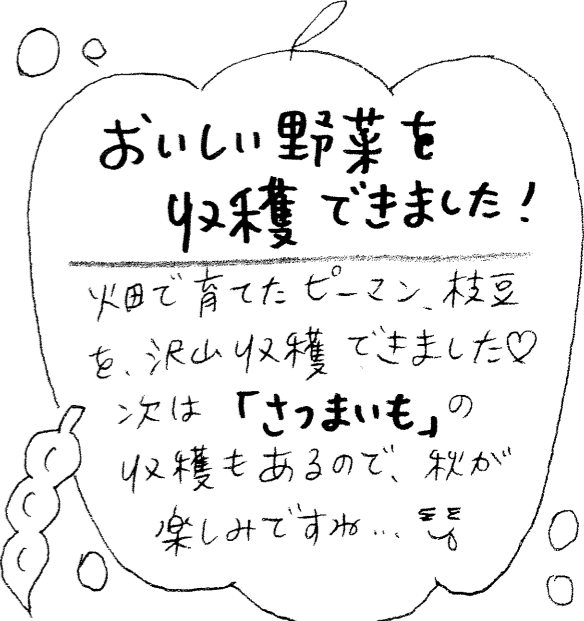 おいしい野菜を
収穫できました!
畑で育てたピーマン、枝豆
を、沢山収穫できました♡
次は「さつまいも」の
収穫もあるので、秋が
楽しみですね…